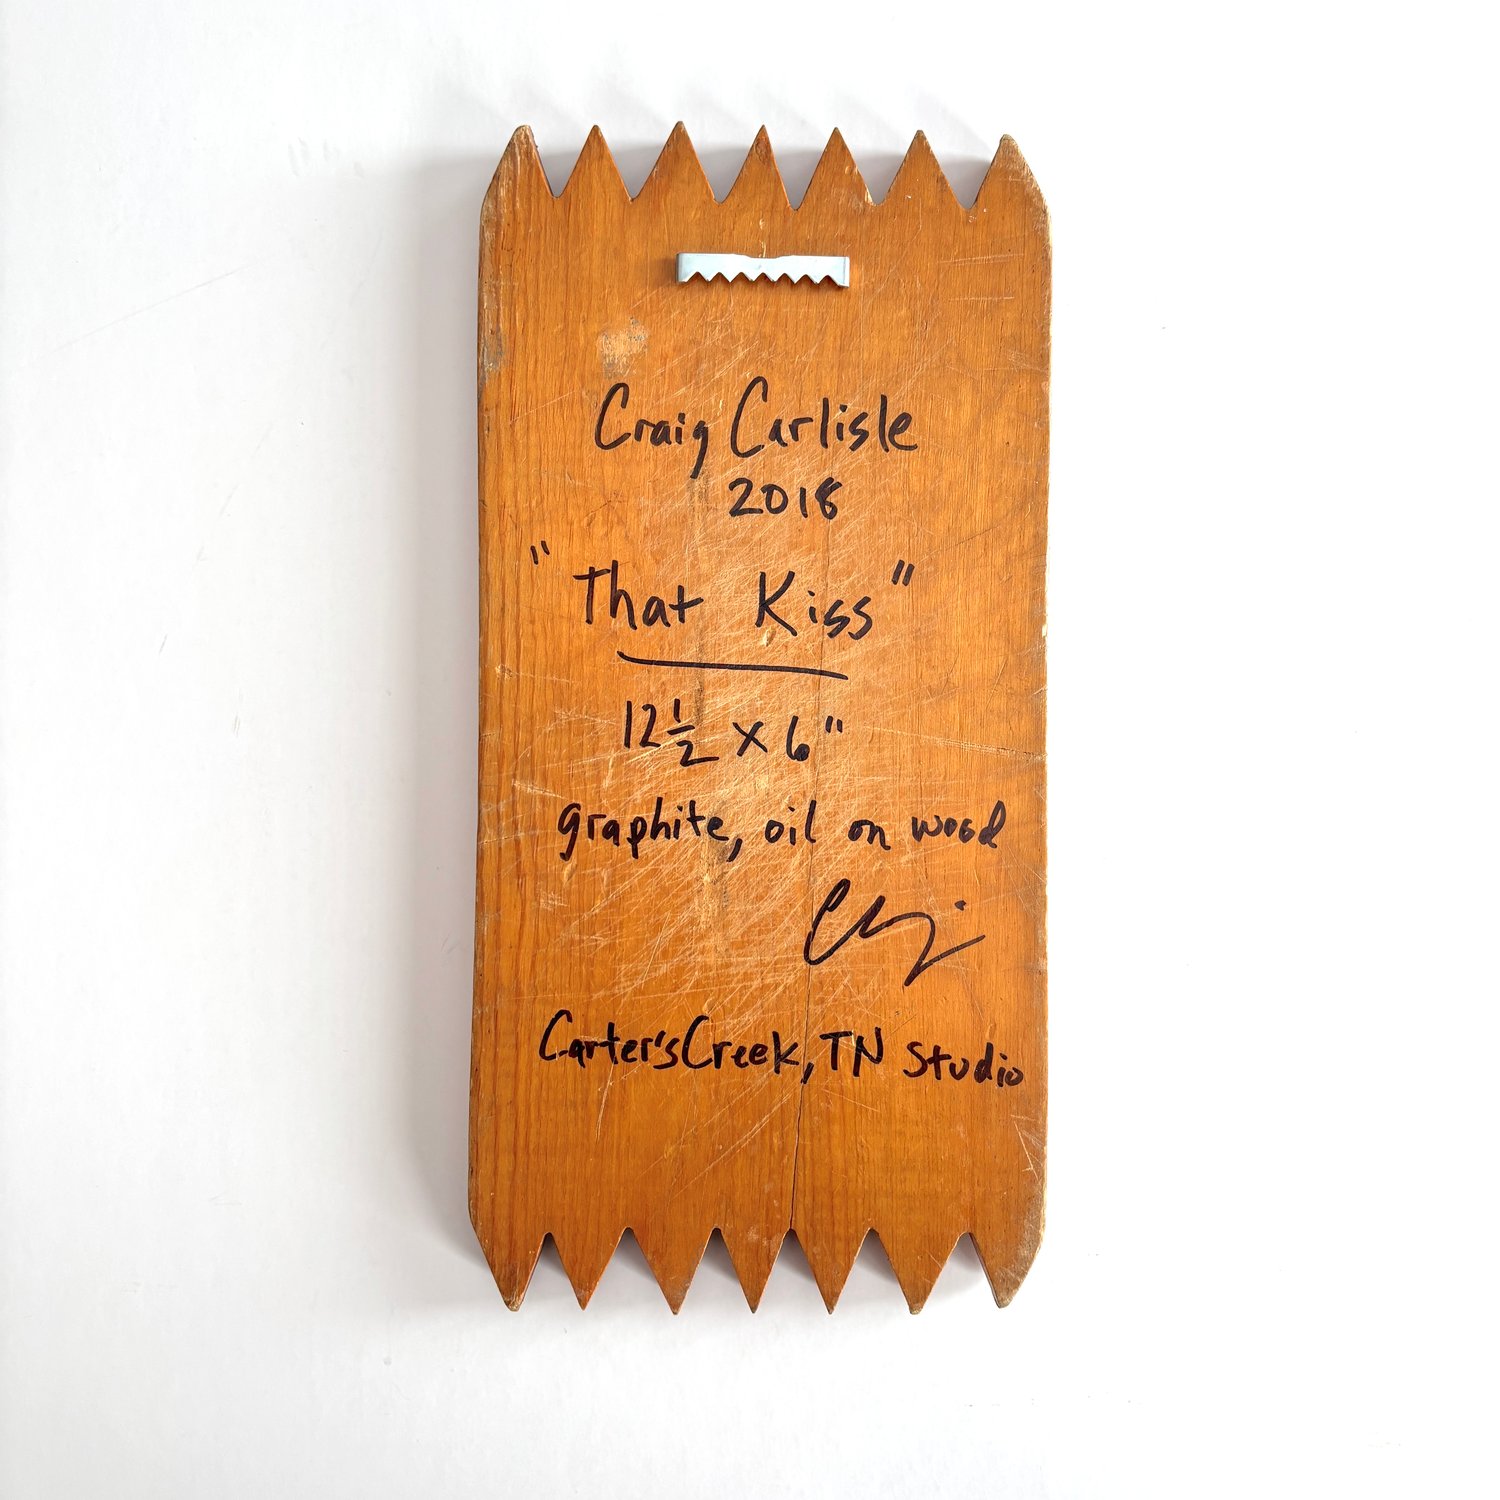 Craig Carlisle
2018
"That Kiss"
12 1/2 x 6"
graphite, oil on wood
Carter's Creek, TN Studio